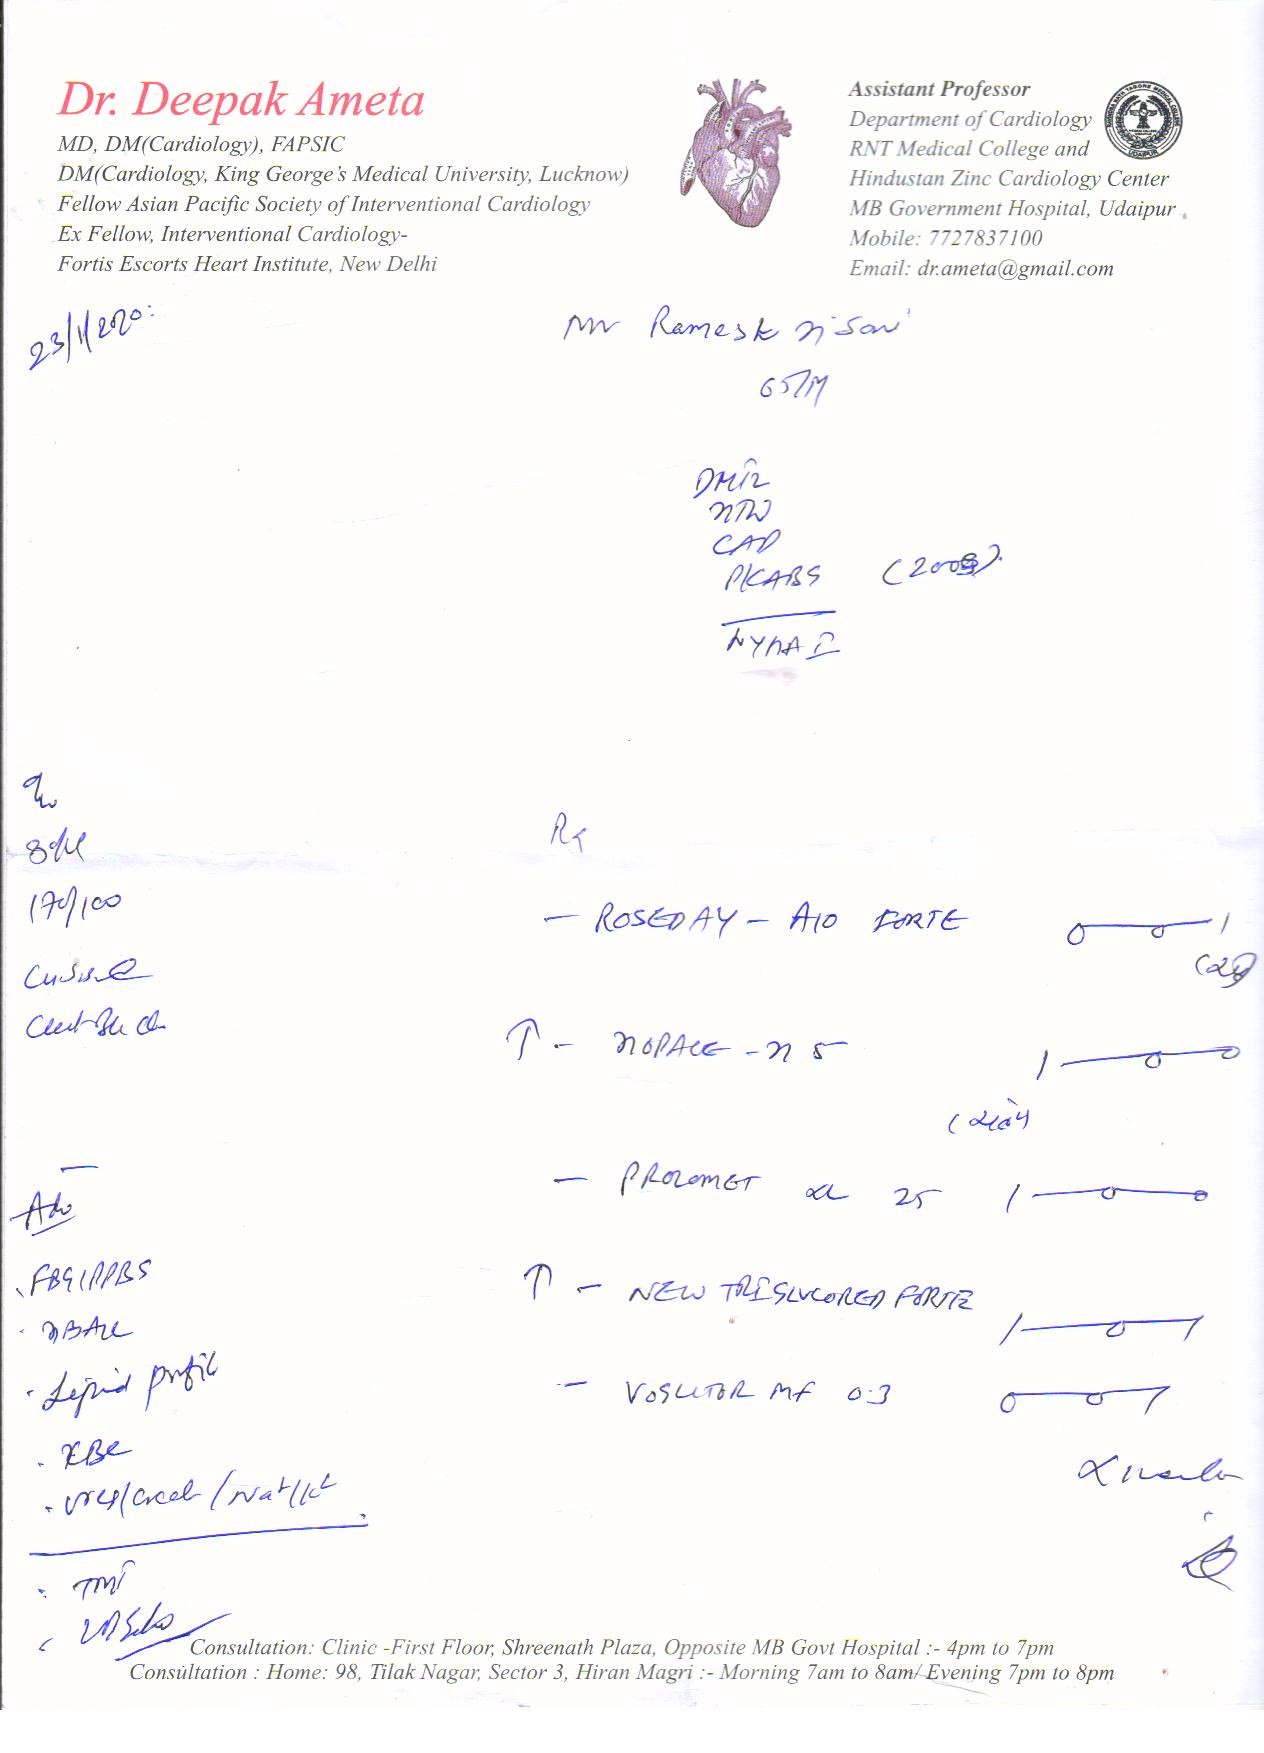 Dr. Deepak Ameta
MD, DM(Cardiology), FAPSIC
DM(Cardiology, King George's Medical University, Lucknow)
Fellow Asian Pacific Society of Interventional Cardiology
Ex Fellow, Interventional Cardiology-
Fortis Escorts Heart Institute, New Delhi
Assistant Professor
Department of Cardiology
RNT Medical College and
Hindustan Zinc Cardiology Center
MB Government Hospital, Udaipur
Mobile: 7727837100
Email: dr.ameta@gmail.com
UDAIPUR
23/1/2020
Mr Ramesh
65/M
HTN
CAD
P/CABG (2008)
NYHA II
170/100
Rx
- ROSEDAY - A10 FORTE 0-0-1
↑ - NOPACE - N 5 1-0-0
- PROLOMET XL 25 1-0-0
↑ - NEW TRIGLUCORED FORTE 1-0-1
- VOGLITOR MF 0.3 0-0-1
Adv
FBS/PPBS
HBA1C
Lipid profile
CBC
Urea/Creat/Na+/K+
TMT
Consultation: Clinic -First Floor, Shreenath Plaza, Opposite MB Govt Hospital :- 4pm to 7pm
Consultation : Home: 98, Tilak Nagar, Sector 3, Hiran Magri :- Morning 7am to 8am/ Evening 7pm to 8pm